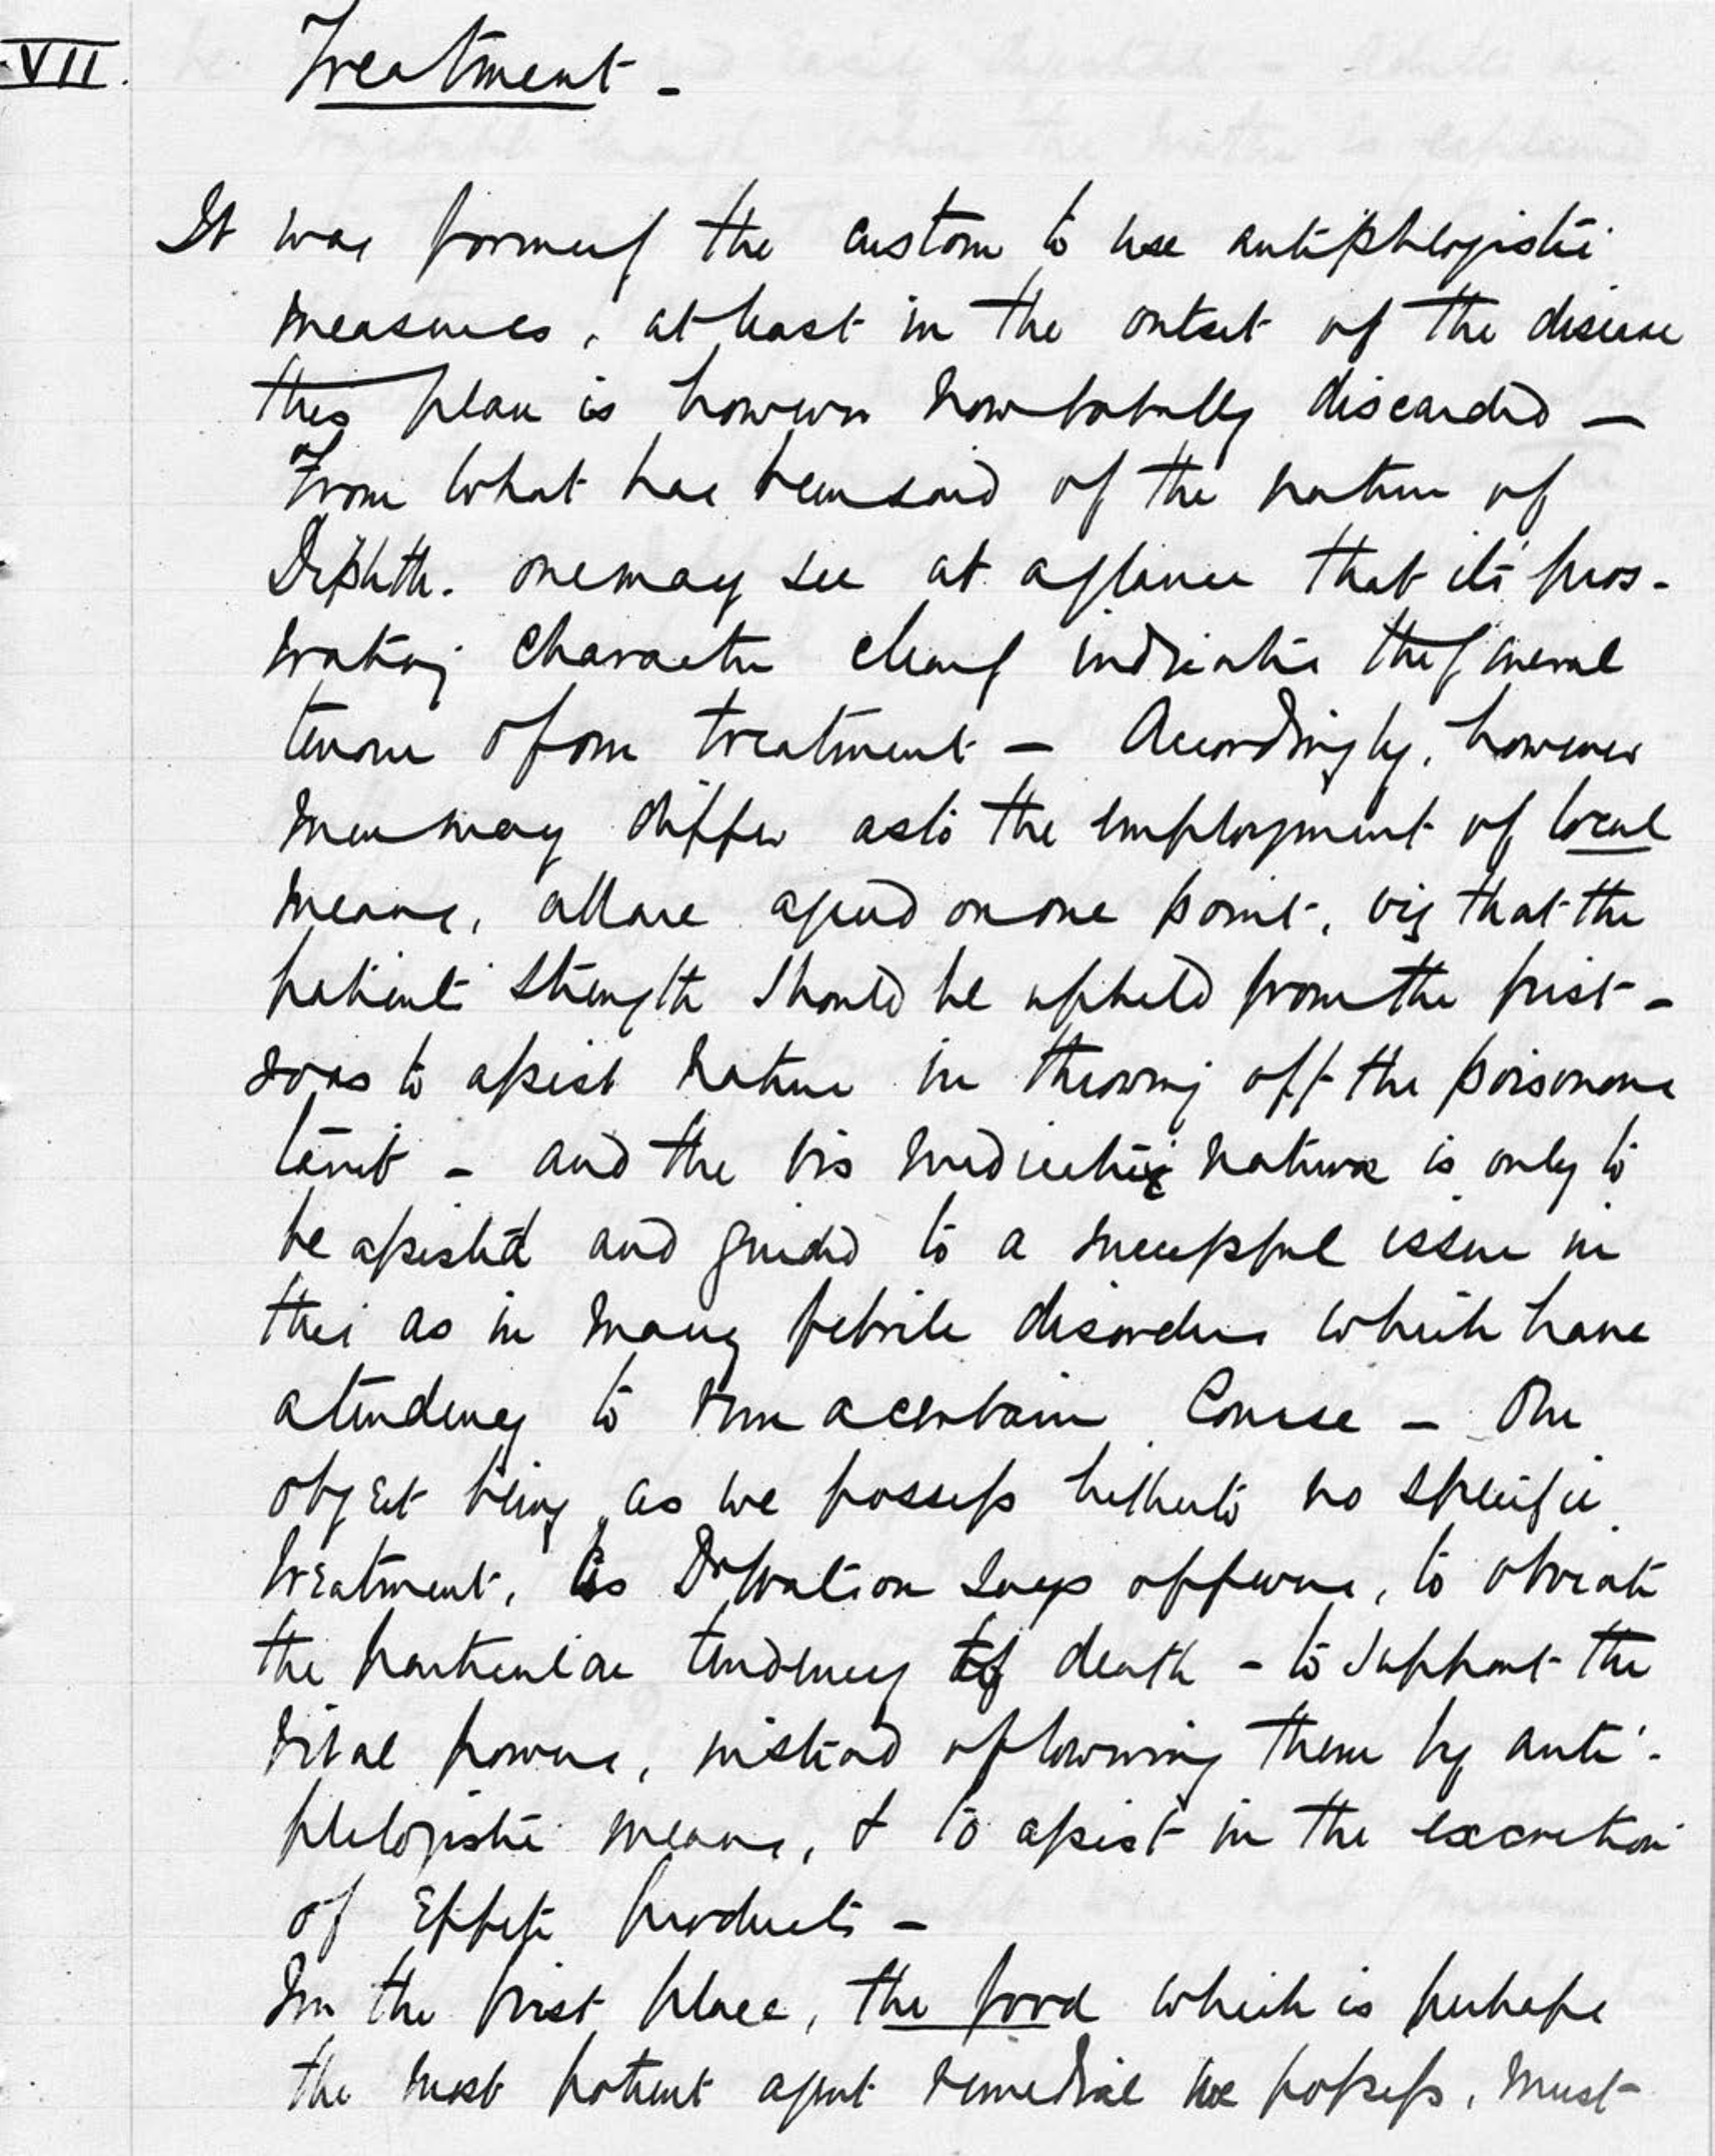 VII. Treatment -
It was formerly the custom to use antiphlogistic
measures, at least in the outset of the disease
this plan is however now totally discarded —
From what has been said of the nature of
Diphth. one may see at a glance that its pros-
trating character clearly indicates the general
tenour of our treatment — Accordingly, however
men may differ as to the employment of local
means, all are agreed on one point, viz that the
patient's strength should be upheld from the first -
so as to assist nature in throwing off the poisonous
taint - and the vis medicatrix naturæ is only to
be assisted and guided to a successful issue in
this as in many febrile disorders which have
a tendency to run a certain course - Our
object being, as we possess hitherto no specific
treatment, as Dr Watson says of fevers, to obviate
the particular tendency to death - to support the
vital powers, instead of lowering them by anti-
phlogistic means, & to assist in the excretion
of effete products -
In the first place, the food which is perhaps
the most potent agent remedial we possess, must